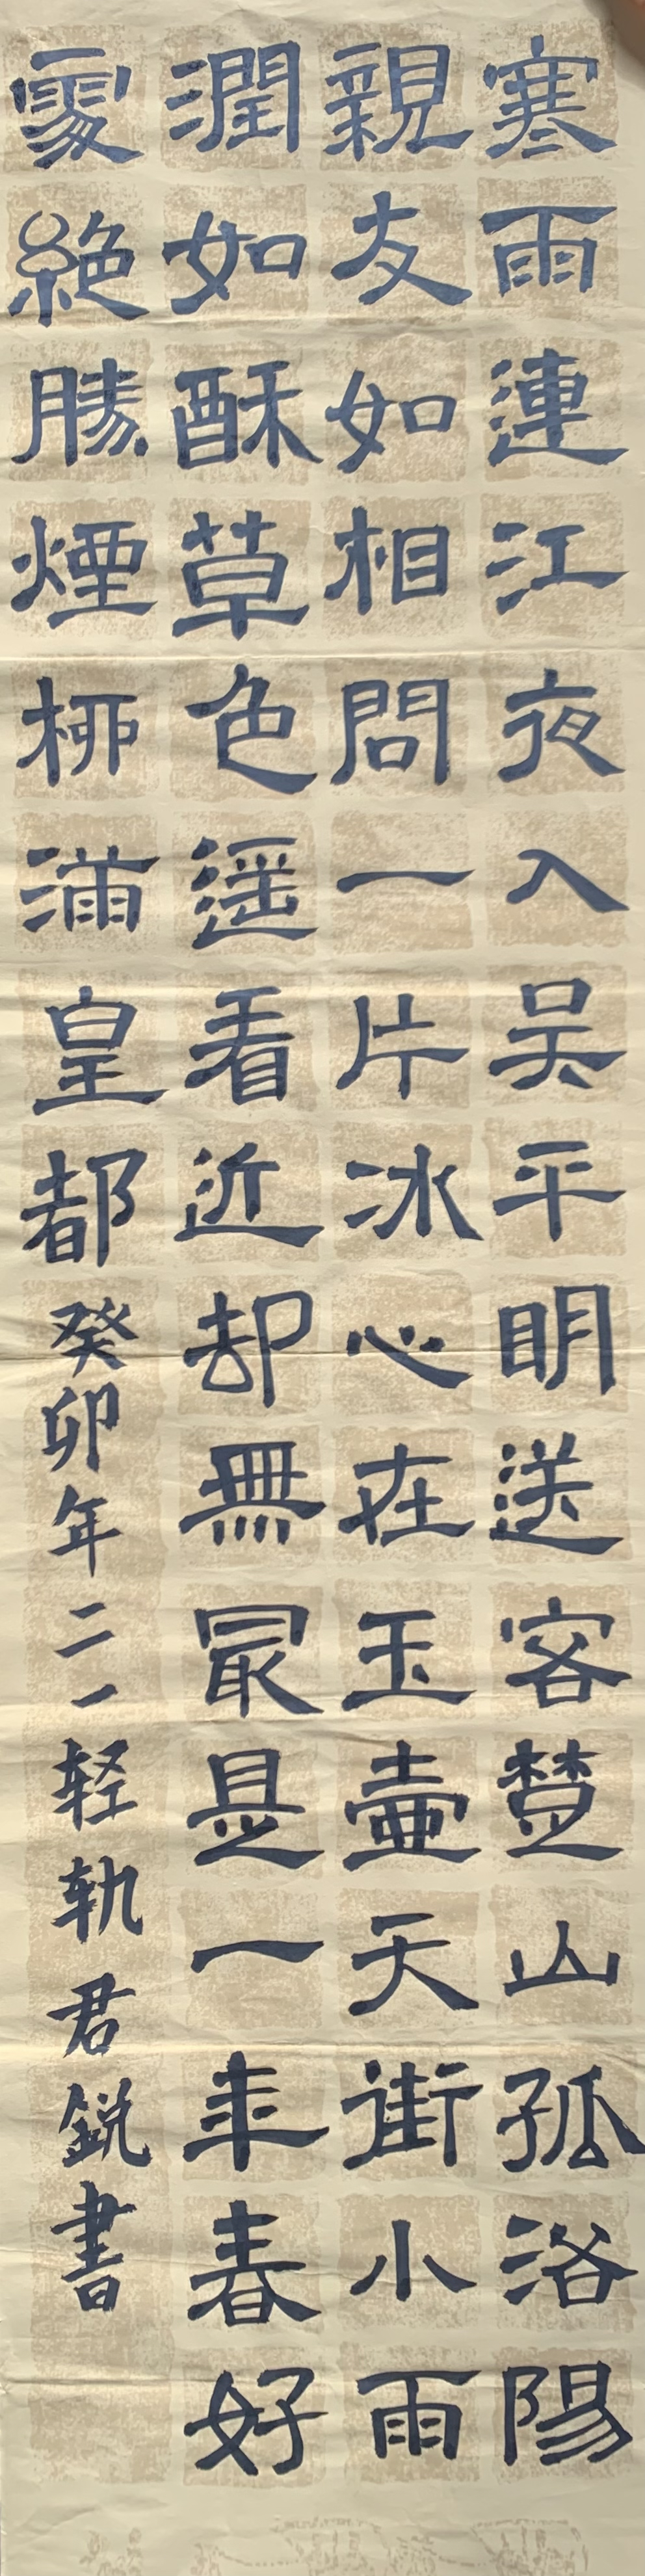 寒雨連江夜入吴平明送客楚山孤洛陽
親友如相問一片冰心在玉壺天街小雨
潤如酥草色遥看近却無最是一年春好
處絶勝煙柳滿皇都癸卯年二一轻轨君鋭書